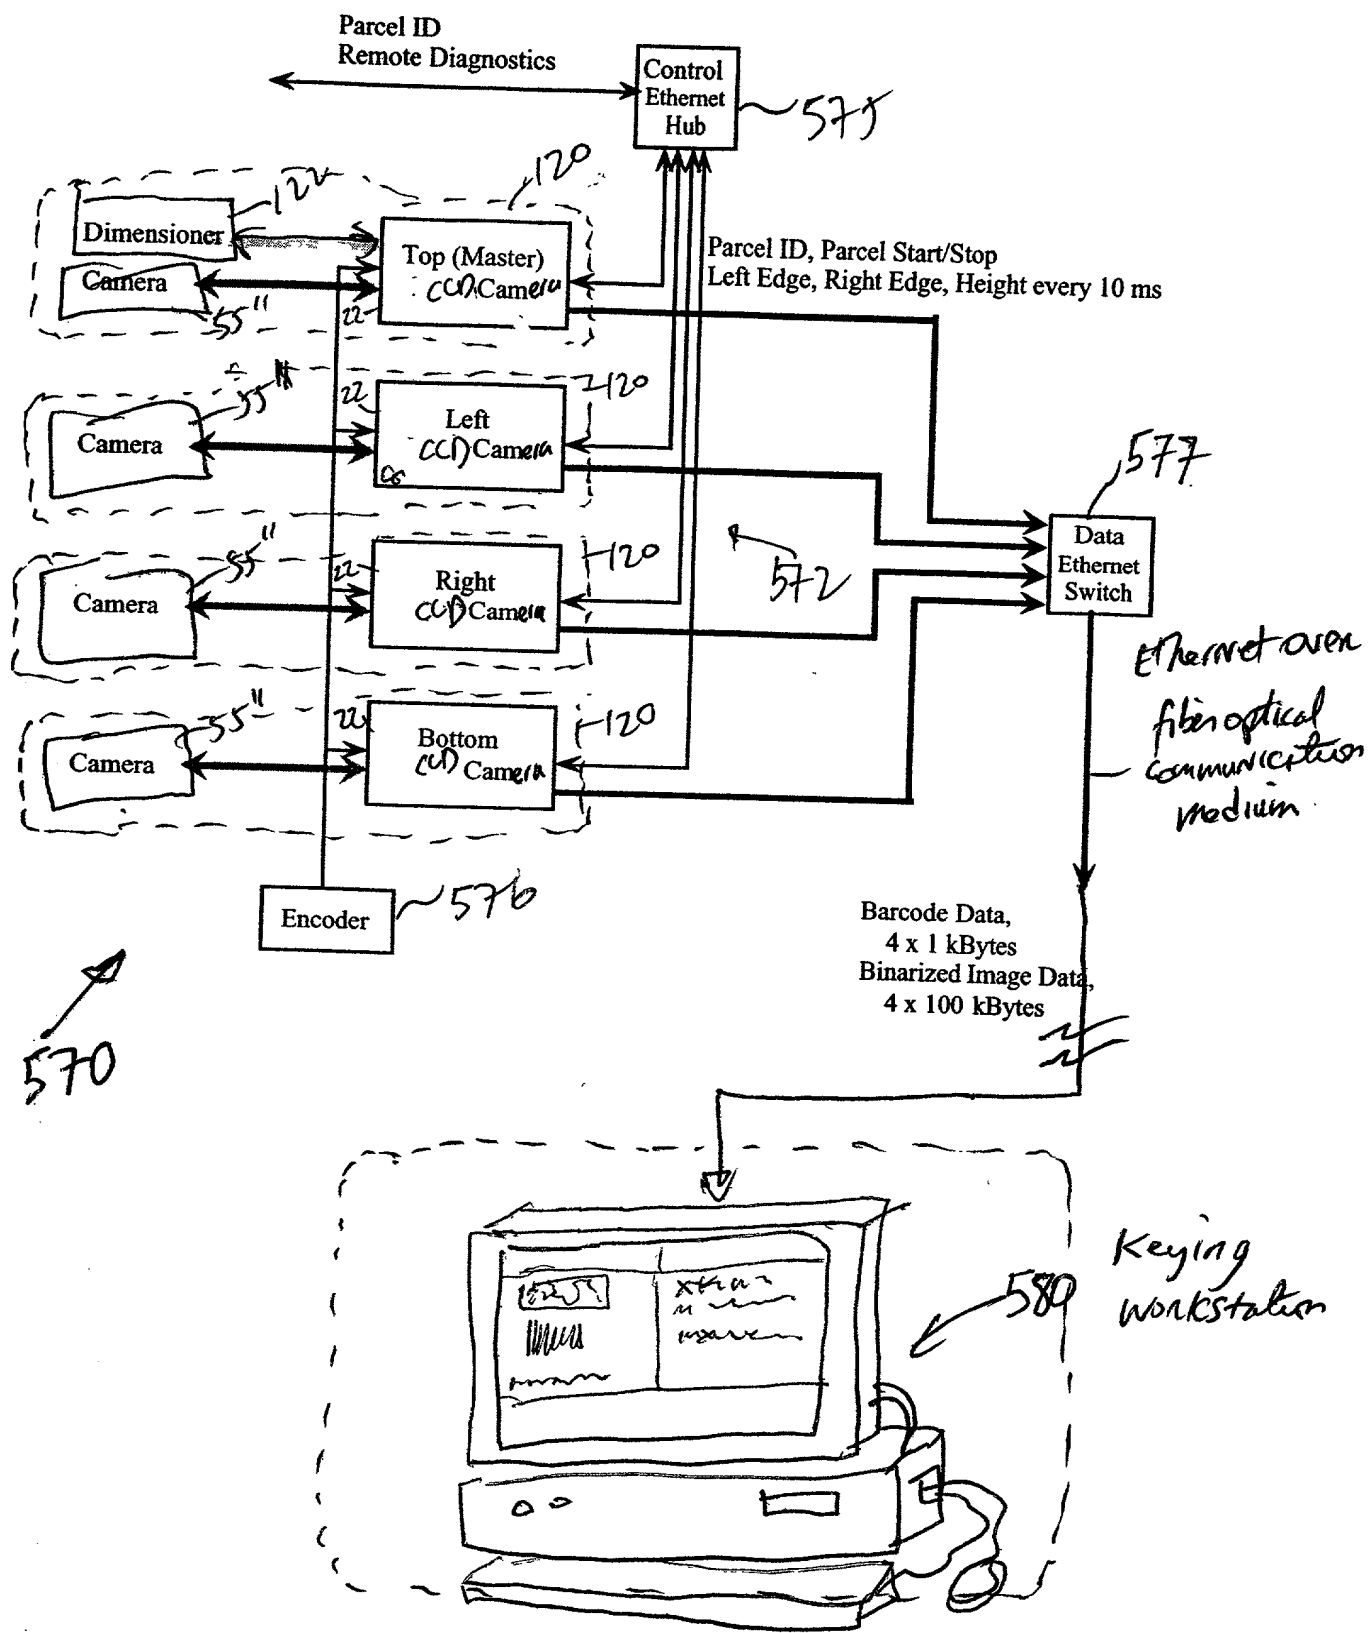 Parcel ID
Remote Diagnostics
Control
Ethernet
Hub
575
120
122
Dimensioner
Camera
55"
Top (Master)
CCD Camera
22
Parcel ID, Parcel Start/Stop
Left Edge, Right Edge, Height every 10 ms
120
22
Camera
Left
CCD Camera
577
Data
Ethernet
Switch
55"
120
22
Camera
Right
CCD Camera
572
Ethernet over
fiber optical
communication
medium
55"
120
22
Camera
Bottom
CCD Camera
Encoder
576
Barcode Data,
4 x 1 kBytes
Binarized Image Data,
4 x 100 kBytes
570
580
Keying
workstation